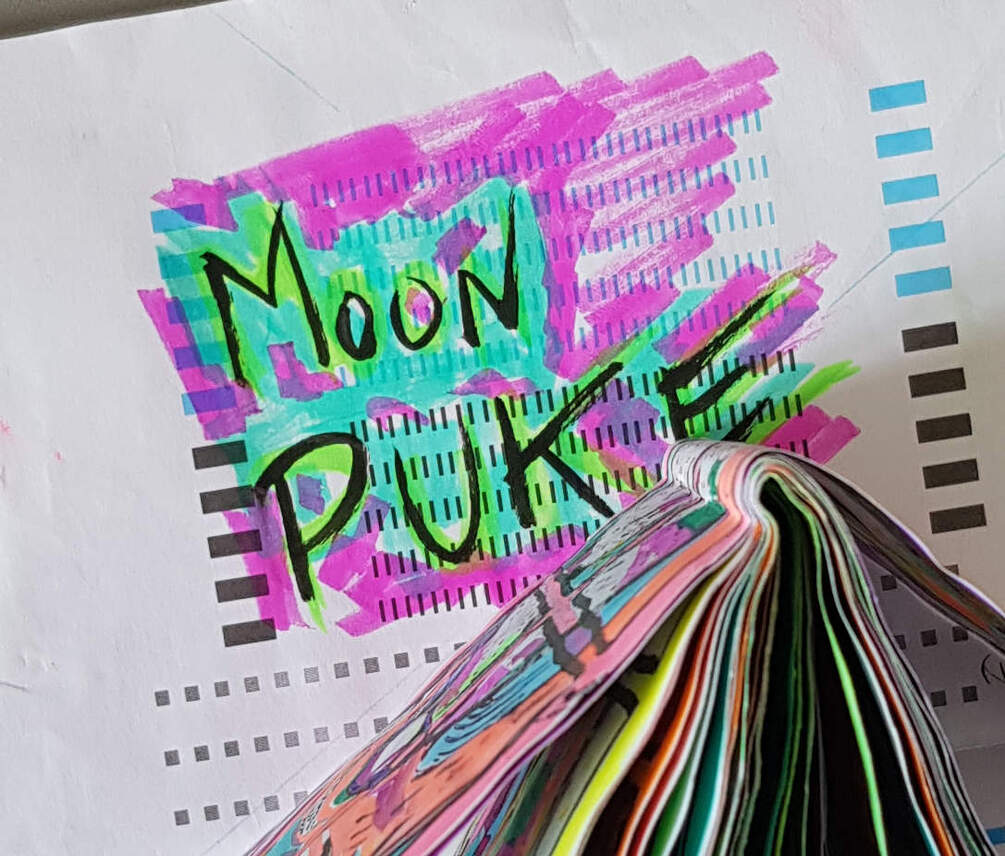 MOON
PUKE